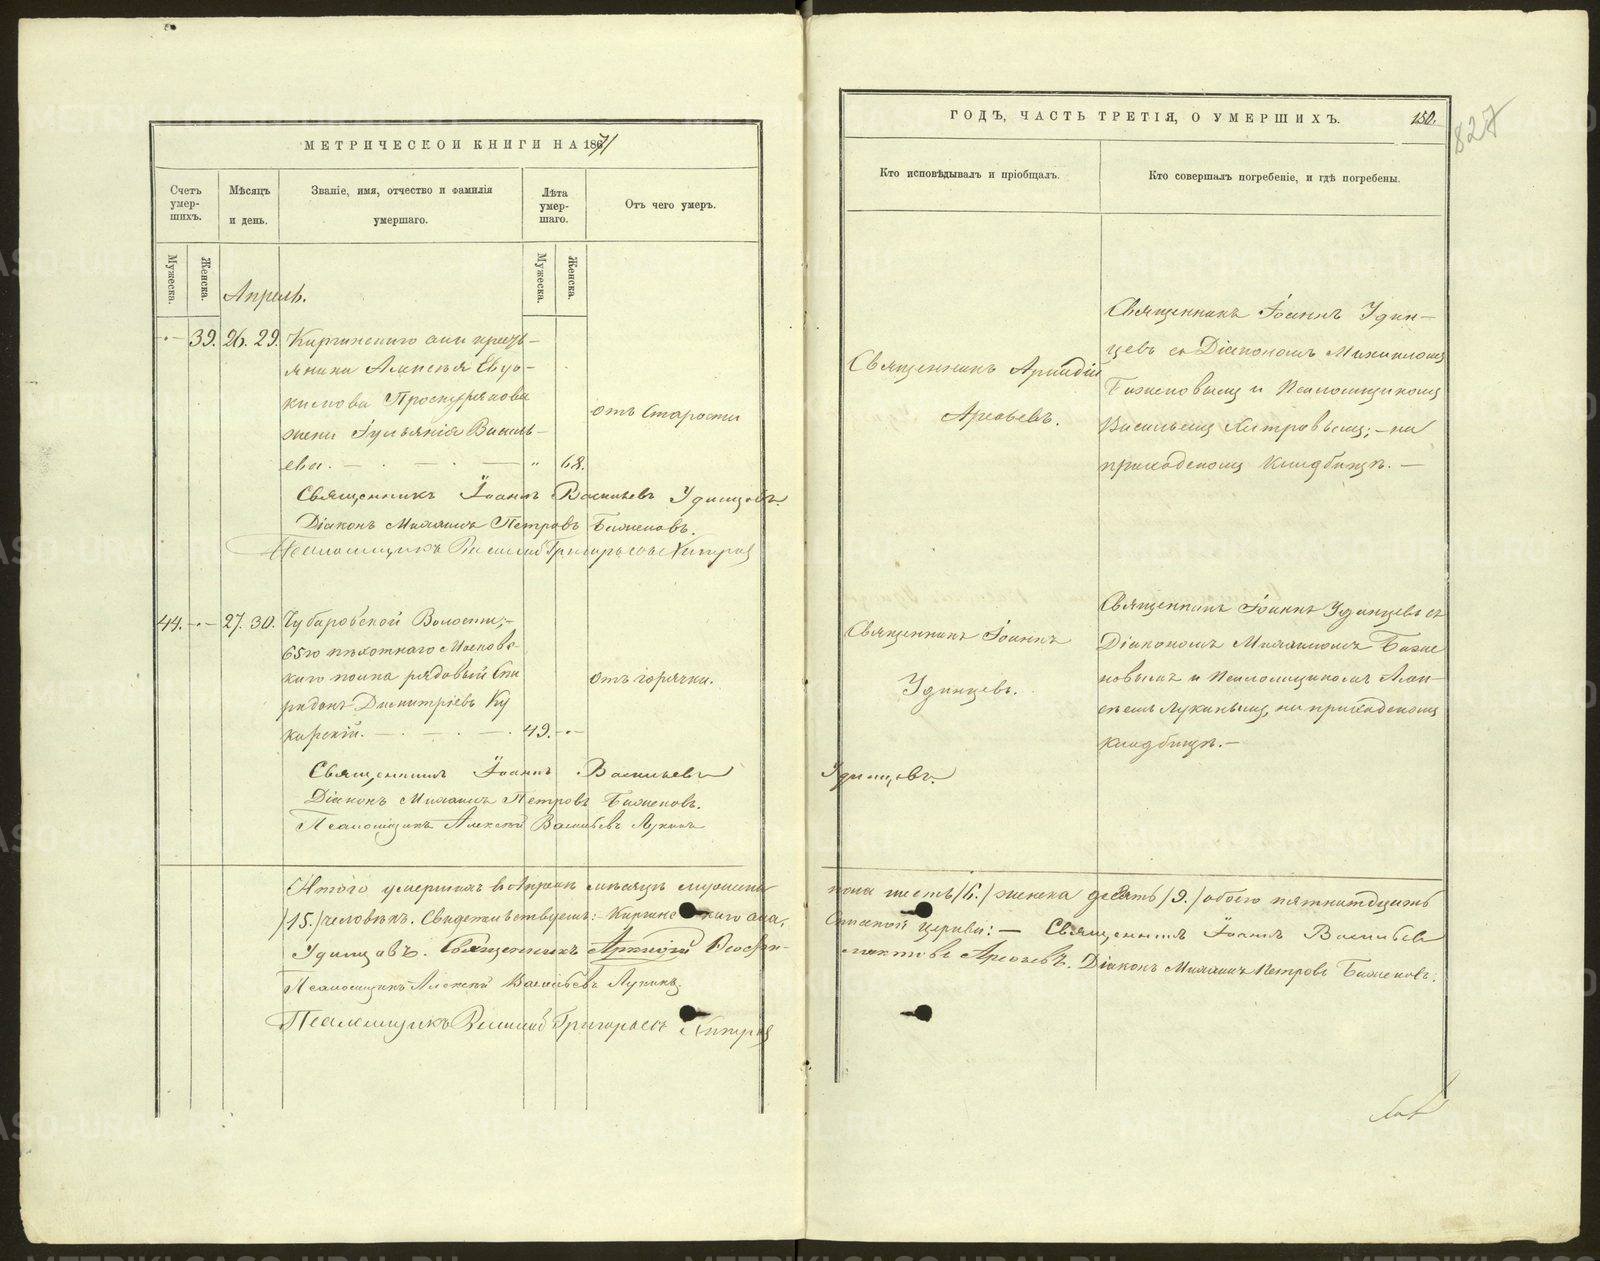 МЕТРИЧЕСКОЙ КНИГИ НА 1871
Счетъ умер-шихъ.
Мѣсяцъ и день.
Званіе, имя, отчество и фамилія умершаго.
Лѣта умер-шаго.
Отъ чего умеръ.
Мужеска.
Женска.
Мужеска.
Женска.
Апрель.
39. 26. 29. Киргинскаго села кресть-
янина Алексѣя Евдо-
кимова Проскурякова
жена Іуліанія Василь-
ева. — 68.
отъ старости
Священникъ Іоаннъ Васильевъ Удинцовъ.
Діаконъ Михаилъ Петровъ Баженовъ.
Псаломщикъ Василій Григорьевъ Хитровъ
44. 27. 30. Чубаровской Волости,
65го пѣхотнаго Москов-
скаго полка рядовый Спи
ридонъ Димитріевъ Ку
карскій. — 49.
отъ горячки.
Священникъ Іоаннъ Васильевъ
Діаконъ Михаилъ Петровъ Баженовъ.
Псаломщикъ Алексѣй Васильевъ Лукинъ
Итого умершихъ въ Апрелѣ мѣсяцѣ мужеска
/15./ человѣкъ. Свидетельствуемъ: Киргинскаго села,
Удинцовъ. Священникъ Аркадій Феофи-
Псаломщикъ Алексѣй Васильевъ Лукинъ
Псаломщикъ Василій Григорьевъ Хитровъ
ГОДЪ, ЧАСТЬ ТРЕТІЯ, О УМЕРШИХЪ.
150.
827
Кто исповѣдывалъ и пріобщалъ.
Кто совершалъ погребеніе, и гдѣ погребены.
Священникъ Аркадій
Арефьевъ.
Священникъ Іоаннъ Удин-
цевъ съ Діакономъ Михаиломъ
Баженовымъ и Псаломщикомъ
Васильемъ Хитровымъ; на
приходскомъ кладбищѣ. —
Священникъ Іоаннъ
Удинцевъ.
Священникъ Іоаннъ Удинцевъ съ
Діакономъ Михаиломъ Баже
новымъ и Псаломщикомъ Алек-
сѣемъ Лукинымъ, на приходскомъ
кладбищѣ. —
Удинцовъ.
пола шесть /6./ женска девять /9./ обоего пятнатдцать
церкви: — Священникъ Іоаннъ Васильевъ
лактовъ Арефьевъ. Діаконъ Михаилъ Петровъ Баженовъ.
METRIKI.GASO-URAL.RU